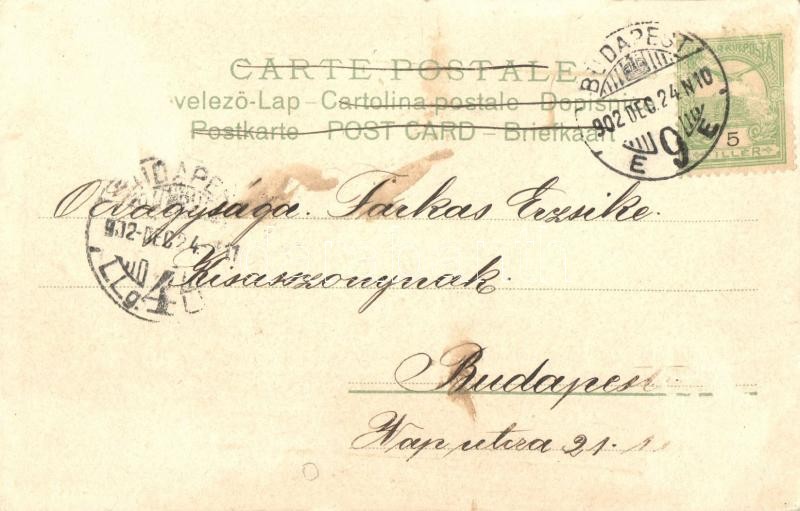 CARTE POSTALE
velező-Lap – Cartolina postale – Dopisnice
Postkarte – POST CARD – Briefkaart
BUDAPEST
902 DEC. 24 N10
9
E E
5
FILLER
BUDAPEST
902-DEC. 24
4
Őnagysága. Farkas Erzsike.
Kisasszonynak.
Budapest
Nap utcza 21.